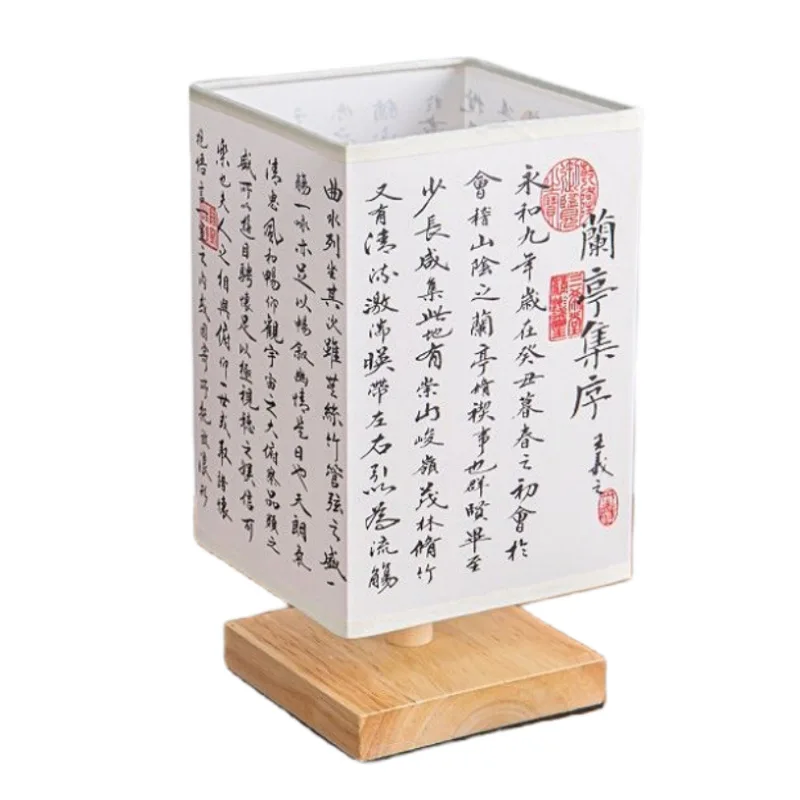 蘭亭集序
王羲之
永和九年歲在癸丑暮春之初會於
會稽山陰之蘭亭脩禊事也群賢畢至
少長咸集此地有崇山峻嶺茂林脩竹
又有清流激湍暎帶左右引以為流觴
曲水列坐其次雖無絲竹管弦之盛一
觴一詠亦足以暢敘幽情是日也天朗氣
清惠風和暢仰觀宇宙之大俯察品類之
盛所以遊目騁懷足以極視聽之娛信可
樂也夫人之相與俯仰一世或取諸懷
抱悟言一室之內或因寄所托放浪形